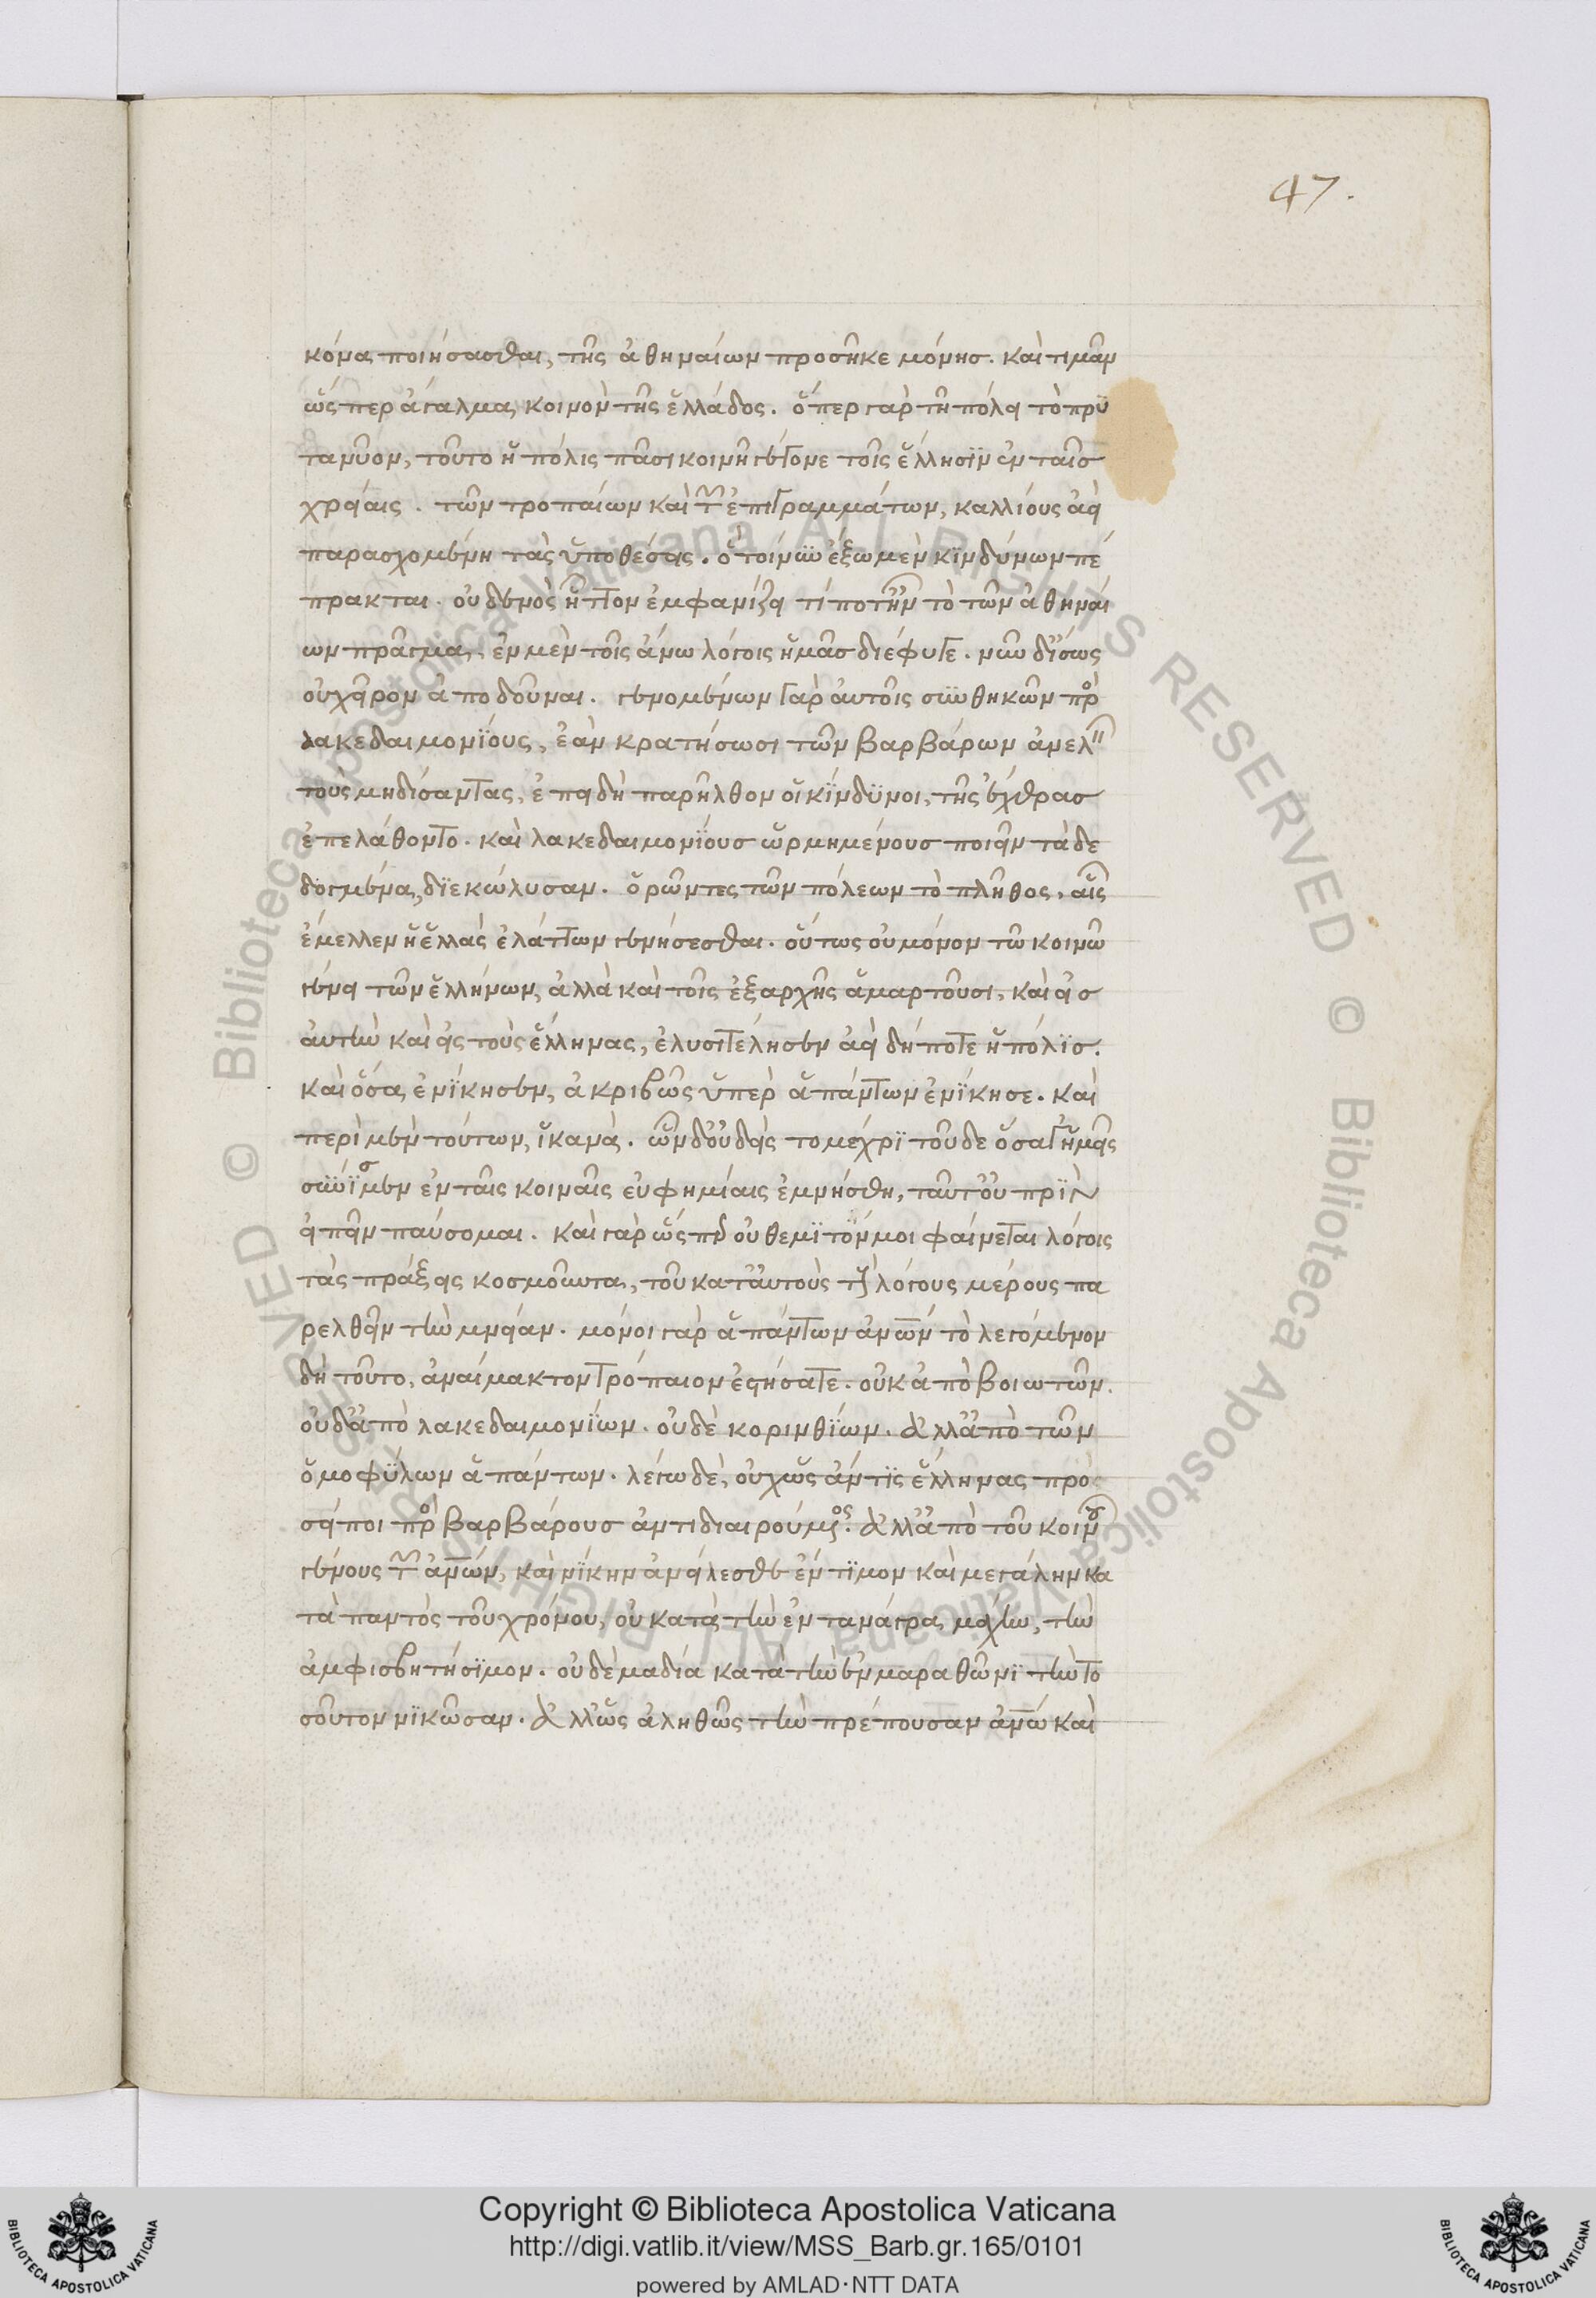 47.
κόνα ποιήσασθαι, τῆς ἀθηναίων προσῆκε μόνησ. καὶ τιμᾶν
ὥσπερ ἄγαλμα κοινὸν τῆς ἑλλάδος. ὅπερ γὰρ τῆ πόλει τὸ πρϋ
τανεῖον, τοῦτο ἡ πόλις πᾶσι κοινῆ γέγονε τοῖς ἕλλησϊν ἐν ταῖσ
χρείαις. τῶν τροπαίων καὶ τῶν ἐπιγραμμάτων, καλλίους ἀεὶ
παρασχομένη τὰς ὑποθέσεις. ὃ τοίνυν ἔξω μὲν κϊνδύνων πέ
πρακται. οὐδενὸς ἧττον ἐμφανίζει τί ποτ' ἦν τὸ τῶν ἀθηναί
ων πρᾶγμα, ἐν μὲν τοῖς ἄνω λόγοις ἡμᾶσ διέφυγε. νῦν δ' ἴσως
οὐ χεῖρον ἀποδοῦναι. γενομένων γὰρ αὐτοῖς συνθηκῶν πρὸς
λακεδαιμονϊους, ἐὰν κρατήσωσι τῶν βαρβάρων ἀνελεῖν
τοὺς μηδίσαντας, ἐπειδὴ παρῆλθον οἱ κϊνδϋνοι, τῆς ἔχθρασ
ἐπελάθοντο. καὶ λακεδαιμονϊουσ ὡρμημένουσ ποιεῖν τὰ δε
δογμένα, δϊεκώλυσαν. ὁρῶντες τῶν πόλεων τὸ πλῆθος, αἷς
ἔμελλεν ἡ ἑλλὰς ἐλάττων γενήσεσθαι. οὕτως οὐ μόνον τῶ κοινῶ
γένει τῶν ἑλλήνων, ἀλλὰ καὶ τοῖς ἐξαρχῆς ἁμαρτοῦσι, καὶ εἰσ
αὐτὴν καὶ εἰς τοὺς ἕλληνας, ἐλυσιτέλησεν ἀεὶ δήποτε ἡ πόλϊσ.
καὶ ὅσα ἐνϊκησεν, ἀκριβῶς ὑπὲρ ἁπάντων ἐνϊκησε. καὶ
περὶ μὲν τούτων, ἱκανὰ. ὧν δ' οὐδεὶς το μέχρϊ τοῦδε ὅσα γ' ἡμεῖς
σύνϊσμεν ἐν ταῖς κοιναῖς εὐφημίαις ἐμνήσθη, ταῦτ' οὐ πρϊν
εἰπεῖν παύσομαι. καὶ γὰρ ὥσπερ οὐ θεμϊτόν μοι φαίνεται λόγοις
τὰς πράξεις κοσμοῦντα, τοῦ κατ' αὐτοὺς τοὺς λόγους μέρους πα
ρελθεῖν τὴν μνείαν. μόνοι γὰρ ἁπάντων ἀνθρώπων τὸ λεγόμενον
δὴ τοῦτο, ἀναίμακτον τρόπαιον ἐστήσατε. οὐκ ἀπὸ βοιωτῶν.
οὐδ' ἀπὸ λακεδαιμονϊων. οὐδὲ κορινθϊων. ἀλλ' ἀπὸ τῶν
ὁμοφϋλων ἁπάντων. λέγω δὲ, οὐχ ὡς ἄν τϊς ἕλληνας πρὸς
είποι πρὸς βαρβάρουσ ἀντιδιαιρούμενος. ἀλλ' ἀπὸ τοῦ κοινοῦ
γένους τῶν ἀνθρώπων, καὶ νϊκην ἀνείλεσθε ἔντϊμον καὶ μεγάλην κα
τὰ παντὸς τοῦ χρόνου, οὐ κατὰ τὴν ἐν τανάγρα μάχην, τὴν
ἀμφισβητήσϊμον. οὐδὲ μαδία κατὰ τὴν ἐν μαραθῶνϊ τὴν το
σοῦτον νϊκῶσαν. ἀλλ' ὡς ἀληθῶς τὴν πρέπουσαν ἀνθρώπω καὶ
Copyright © Biblioteca Apostolica Vaticana
http://digi.vatlib.it/view/MSS_Barb.gr.165/0101
powered by AMLAD·NTT DATA